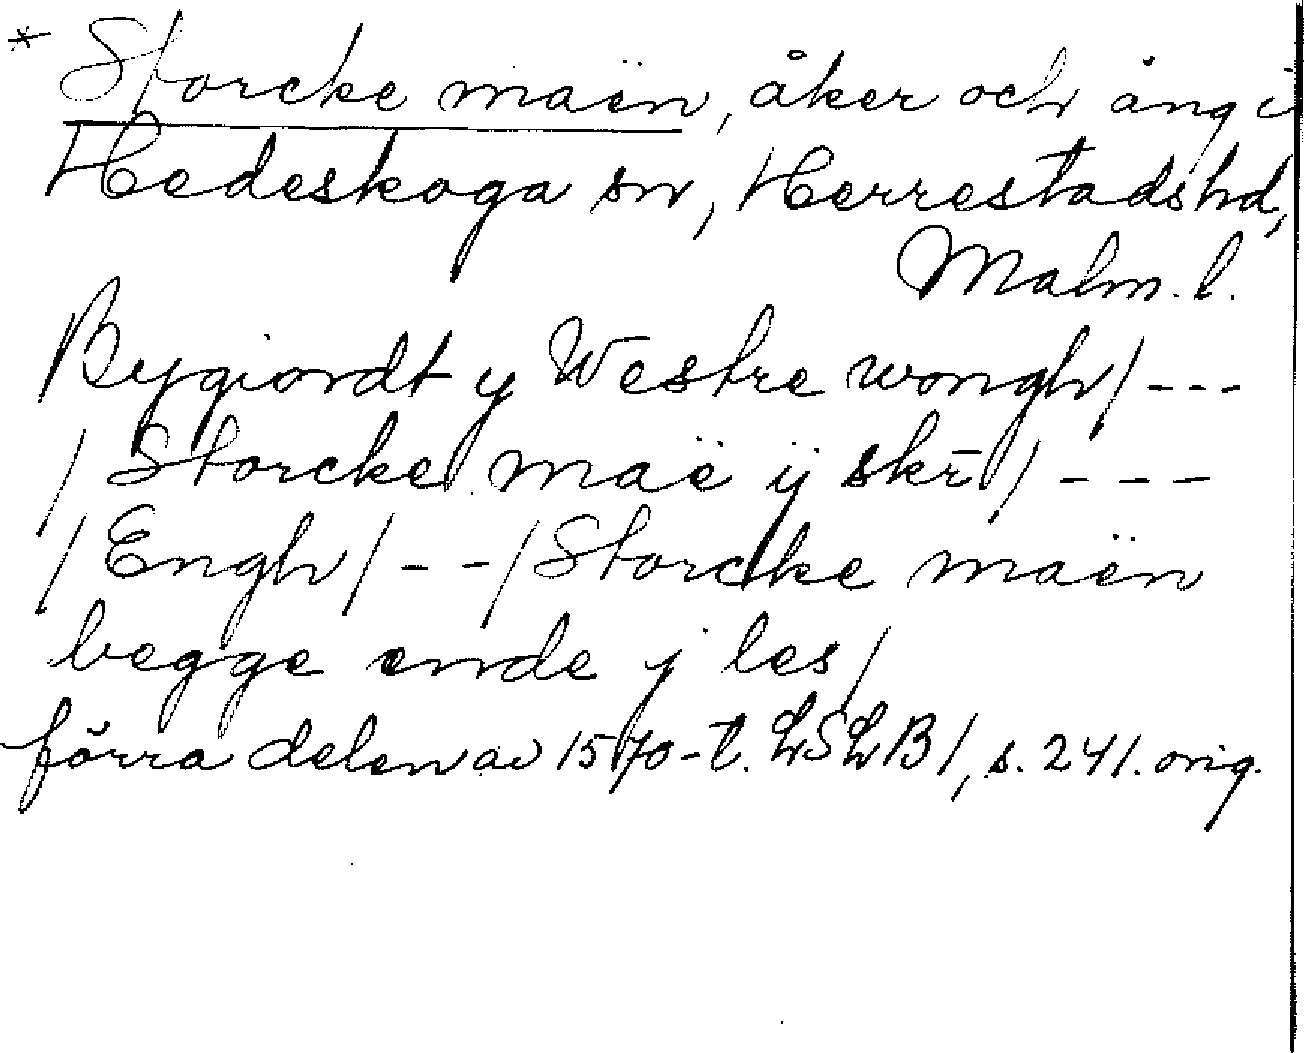 * Storcke maën, åker och äng i
Hedeskoga sn, Herrestads hd,
Malm. l.
Bygiordt y Westre wongh/---
/Storcke maë ij skr̄/---
/Engh/--/Storcke maën
begge ende j les/
förra delen av 1570-t. LSLB1, s. 241. orig.